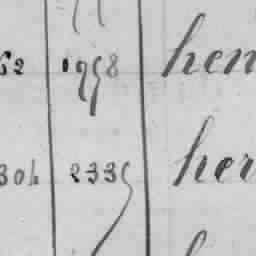 62 1958 hen
304 2335 her